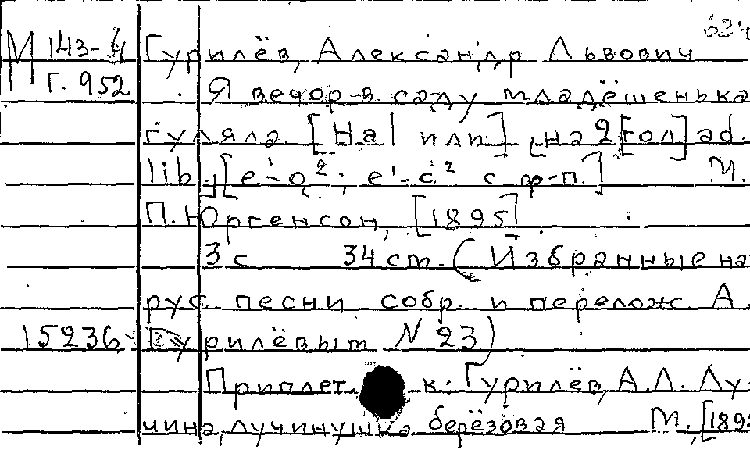 634
М 143-4 Гурилёв, Александр Львович
Г. 952 Я вечор в саду младёшенька
гуляла. [На 1 или] на 2 [гол] ad.
lib. [e¹-a²; e¹-c² с ф-п.] М.
П. Юргенсон, [1895].
3 с 34 см. (Избранные на
рус. песни собр. и перелож. А.
15236 Гурилёвым N 23)
Приплет. к: Гурилёв, А.Л. Лу-
чина, лучинушка берёзовая М., [1895